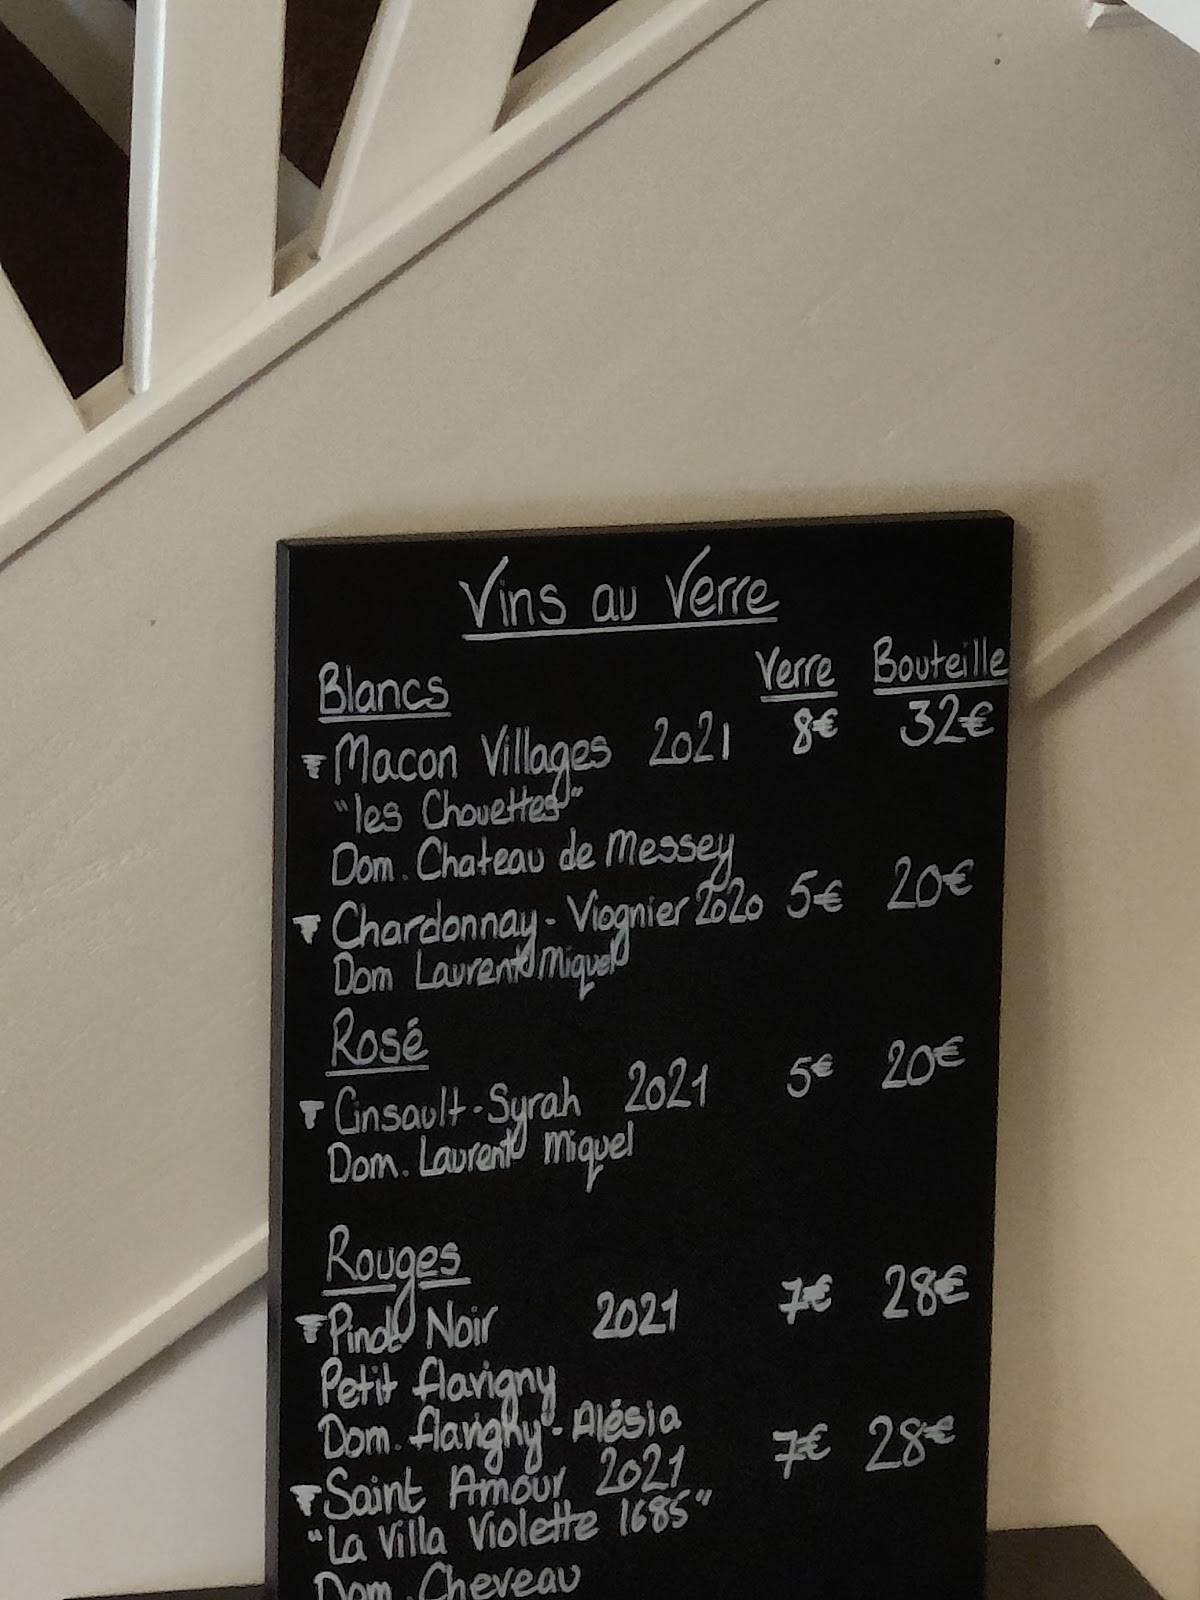 Vins au Verre
Blancs Verre Bouteille
Macon Villages 2021 8€ 32€
"les Chouettes"
Dom. Chateau de Messey
Chardonnay - Viognier 2020 5€ 20€
Dom Laurent Miquel
Rosé
Cinsault - Syrah 2021 5€ 20€
Dom. Laurent Miquel
Rouges
Pinot Noir 2021 7€ 28€
Petit flavigny
Dom. flavigny - Alésia
Saint Amour 2021 7€ 28€
"La Villa Violette 1685"
Dom. Cheveau